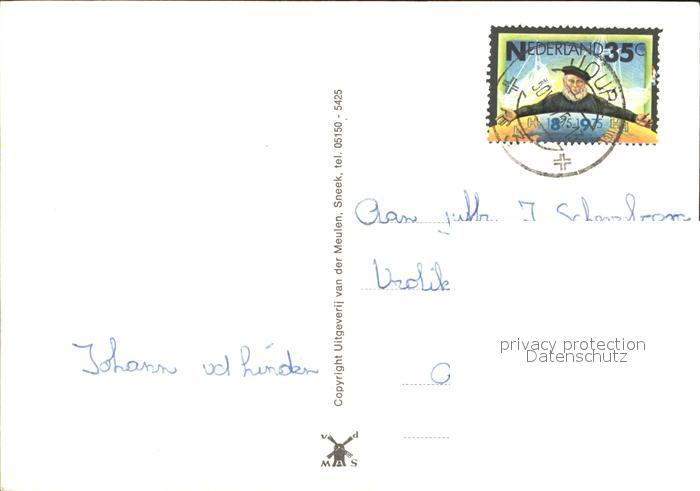 NEDERLAND 35C
1875 1975
Copyright Uitgeverij van der Meulen, Sneek, tel. 05150 - 5425
Aan
Vrolik
privacy protection
Datenschutz
Johann vd Linden
v d
MAS